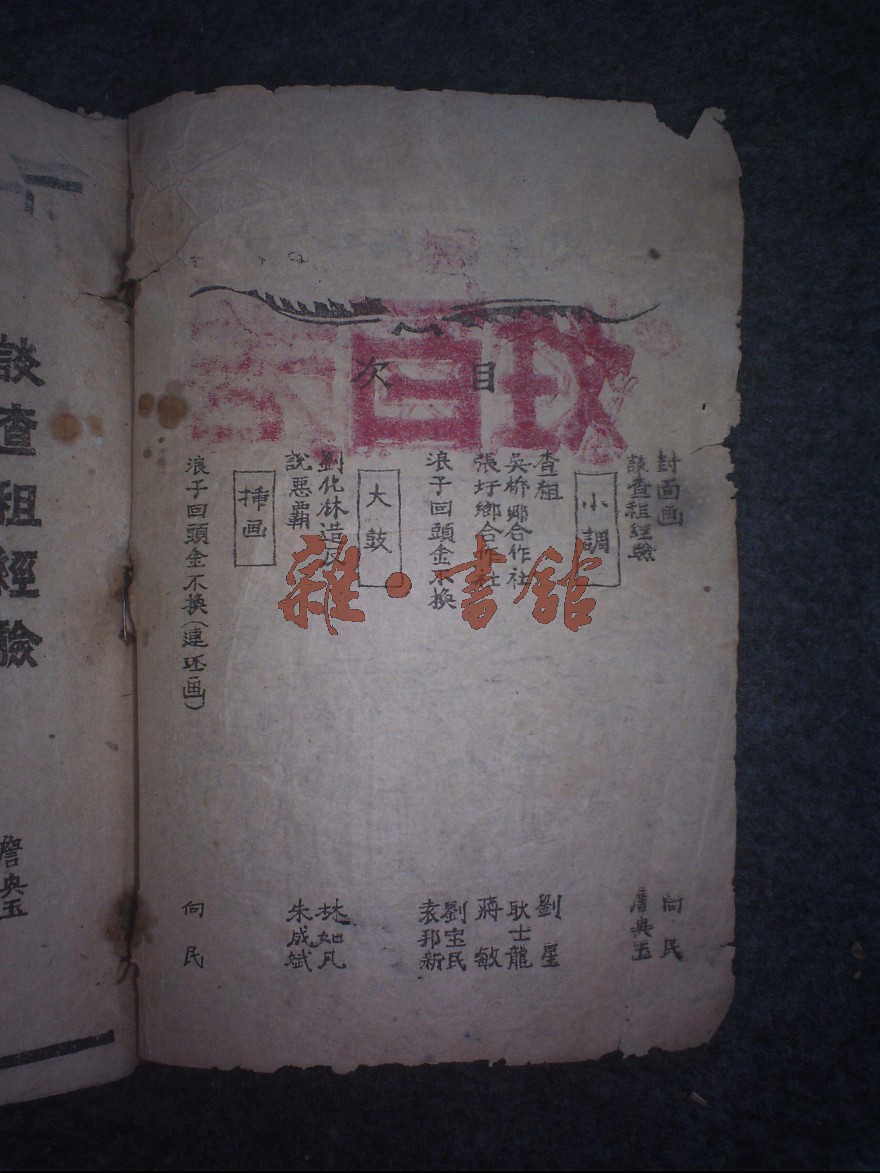 目次
封面画 向民
談查租經驗 詹典玉
小調
查租 劉星
吳桥鄉合作社 耿士龍
張圩鄉合作社 蔣敏
浪子回頭金不換 劉宝民
袁邦新
大鼓
劉化林造反 林如凡
說惡霸 朱成斌
插画
浪子回頭金不換(連环画) 向民
談查租經驗
詹典玉
雜·書館